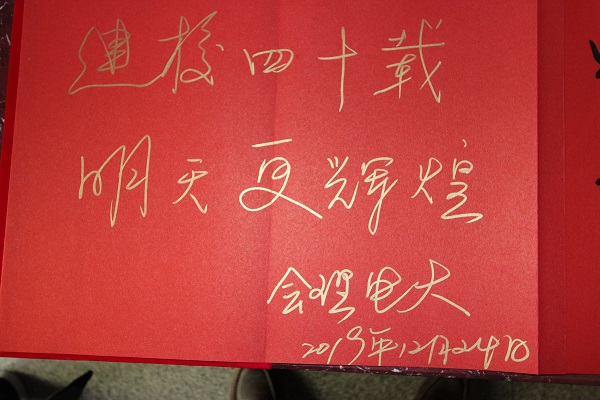 建校四十载
明天更辉煌
会理电大
2019年12月24日